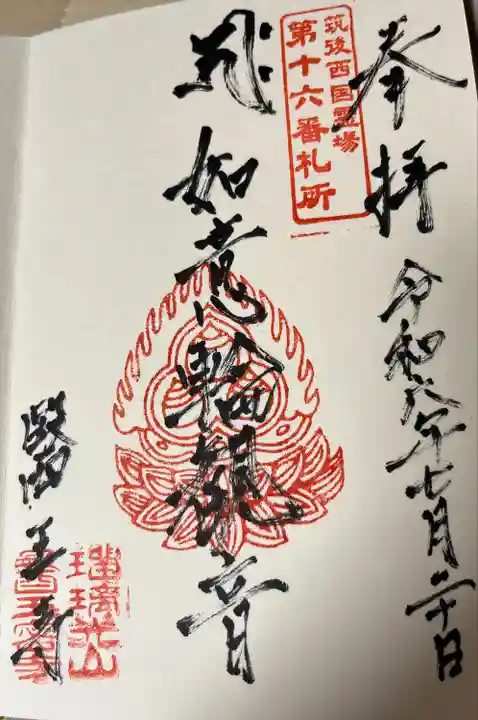 奉拝
令和六年七月二十日
筑後西国霊場
第十六番札所
如意輪観音
醫王寺
瑠璃山